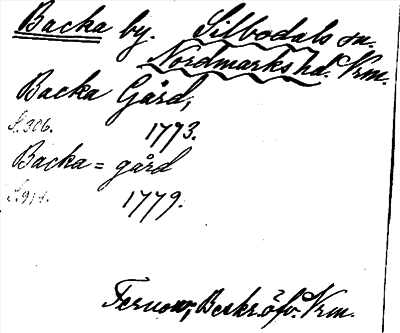 Backa by. Silbodals sn.
Nordmarks hd. Vrm.
Backa Gård,
S. 306. 1773.
Backa=gård
S. 914. 1779.
Fernow, Beskr. öfv. Vrm.